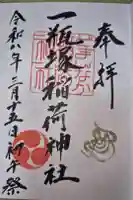 奉拝
一瓶塚稲荷神社
令和八年二月十五日初午祭